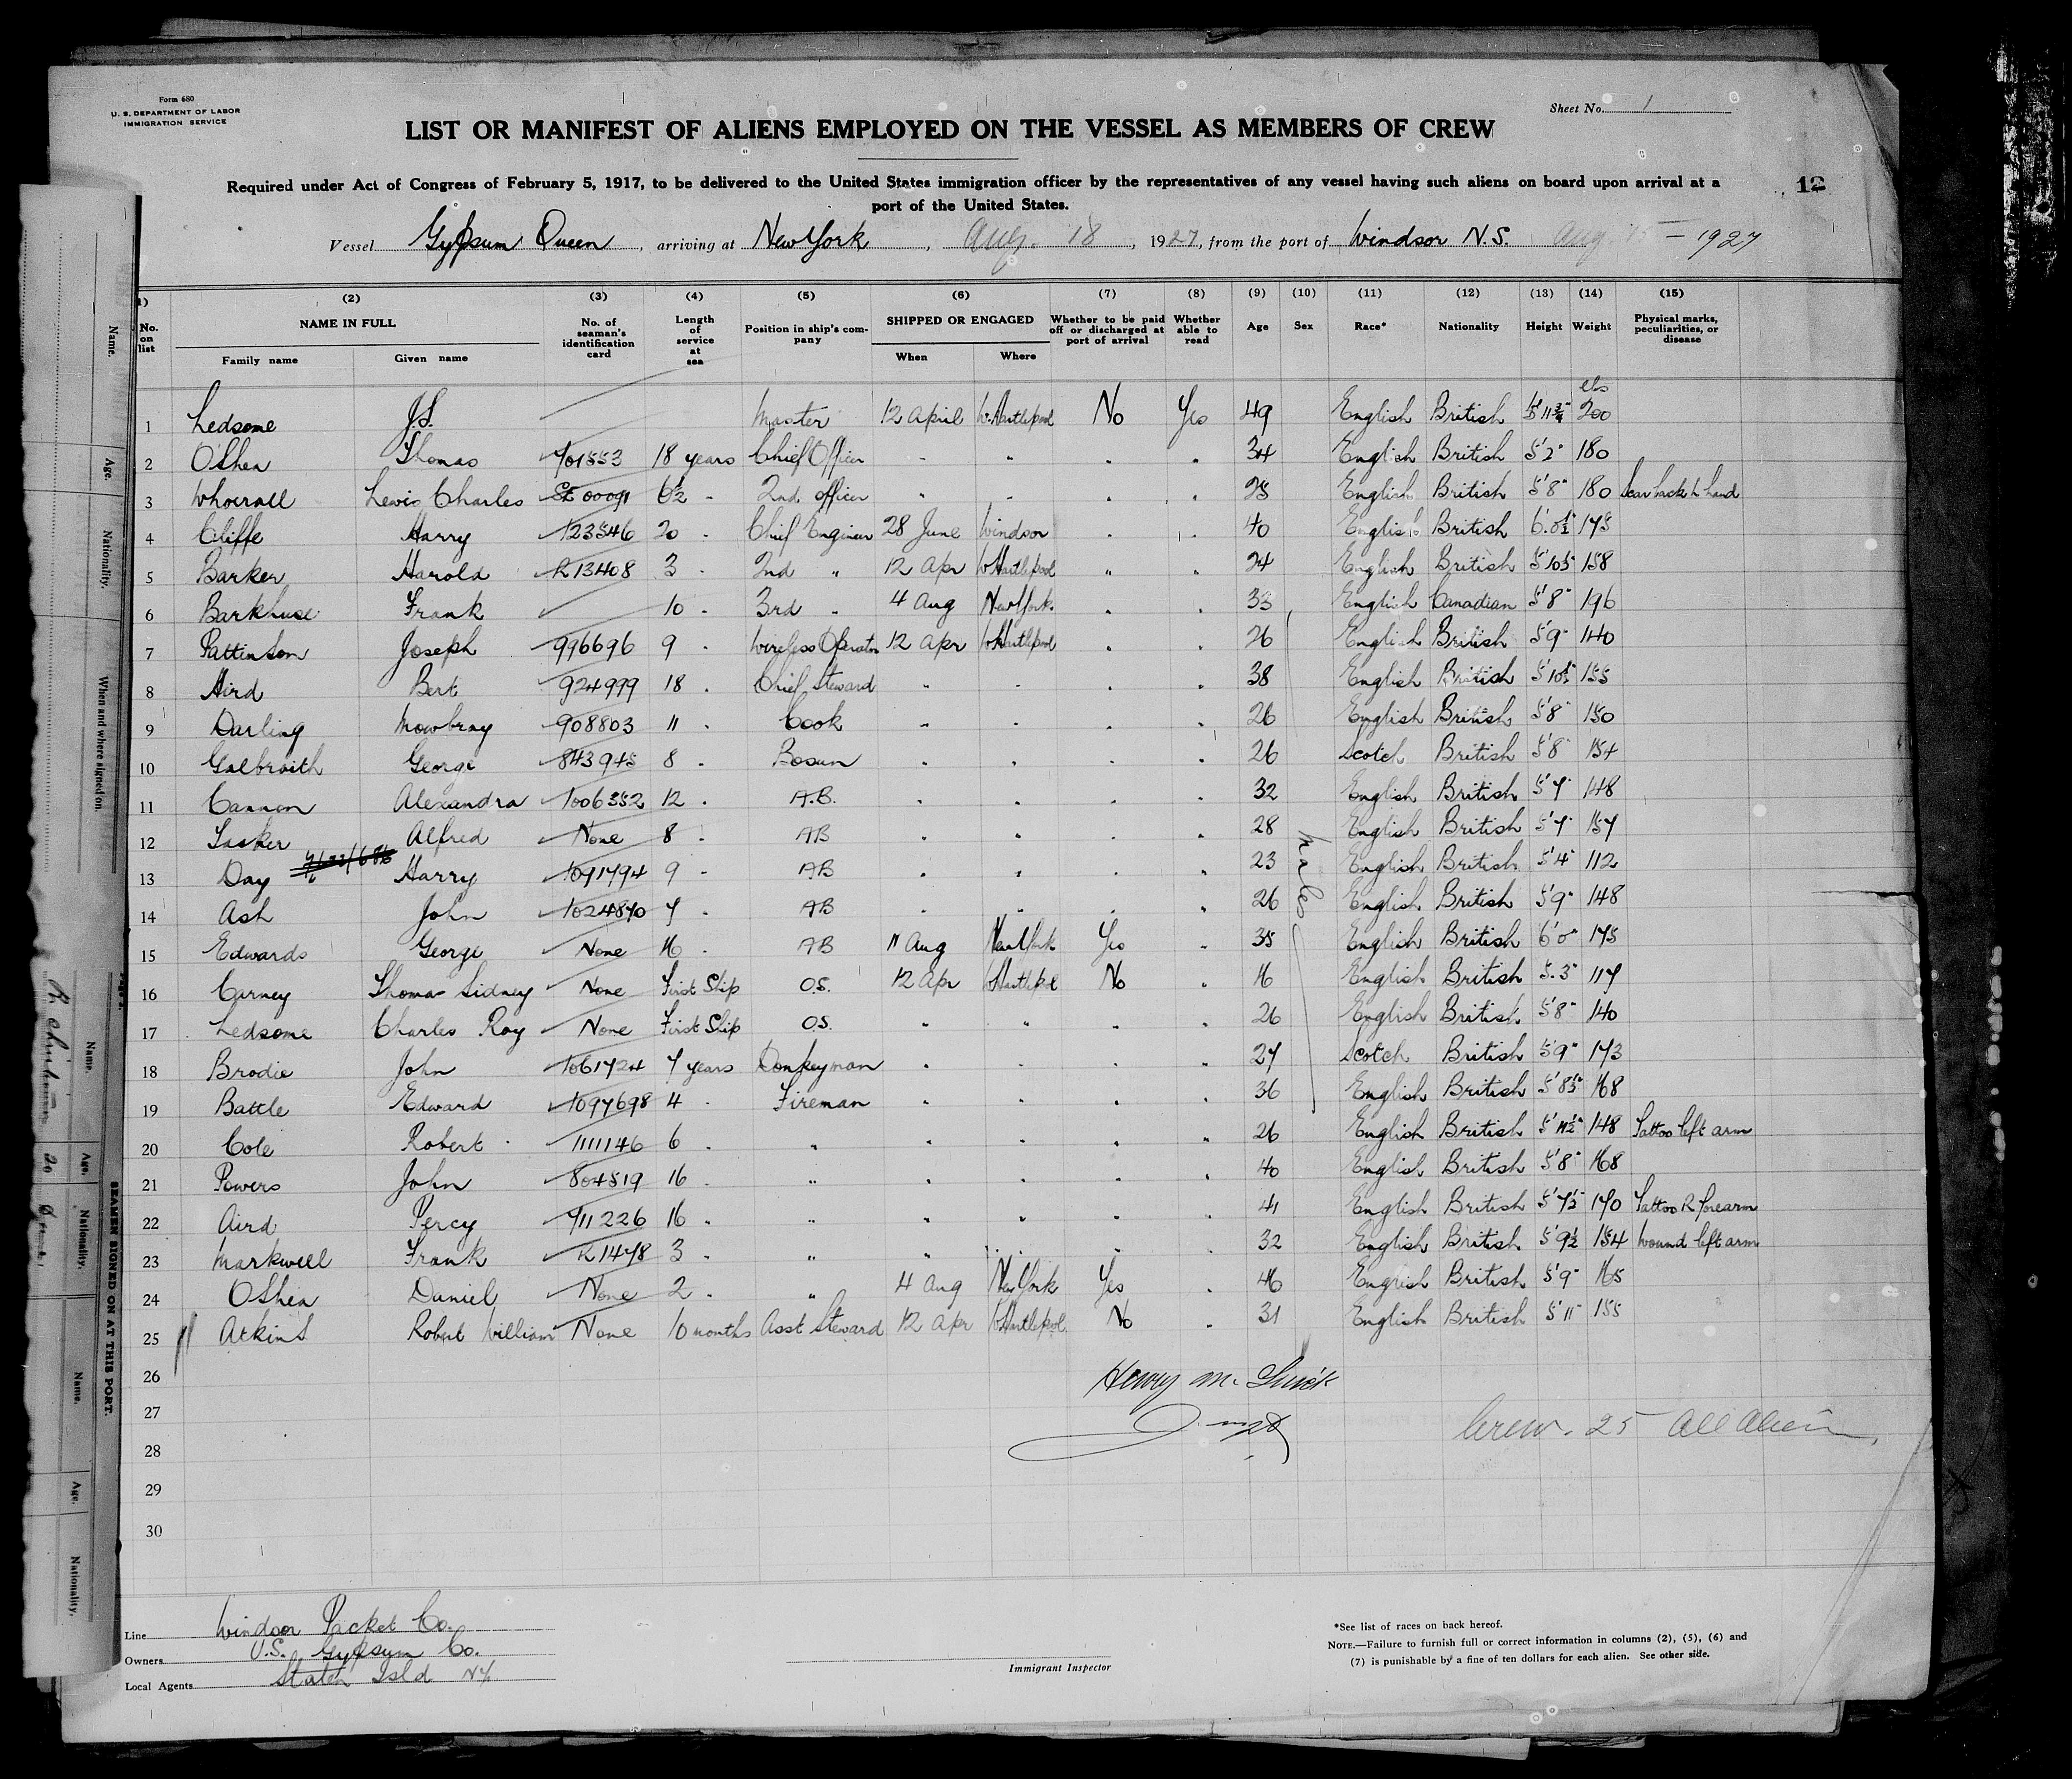 Form 680
U. S. DEPARTMENT OF LABOR
IMMIGRATION SERVICE
Sheet No. 1
LIST OR MANIFEST OF ALIENS EMPLOYED ON THE VESSEL AS MEMBERS OF CREW
12
Required under Act of Congress of February 5, 1917, to be delivered to the United States immigration officer by the representatives of any vessel having such aliens on board upon arrival at a
port of the United States.
Vessel Gypsum Queen, arriving at New York, Aug. 18, 1927, from the port of Windsor N.S. Aug 15 - 1927
(1) (2) (3) (4) (5) (6) (7) (8) (9) (10) (11) (12) (13) (14) (15)
No. on list NAME IN FULL Family name Given name No. of seaman's identification card Length of service at sea Position in ship's company SHIPPED OR ENGAGED When Where Whether to be paid off or discharged at port of arrival Whether able to read Age Sex Race* Nationality Height Weight Physical marks, peculiarities, or disease
lbs
1 Ledsome J.S. Master 12 April W. Hartlepool No Yes 49 English British 5' 11 3/4 200
2 O'Shea Thomas 701553 18 years Chief Officer " " " " 34 English British 5'2" 180
3 Whorrall Lewis Charles 6½ " 2nd officer " " " " 25 English British 5'8" 180 Scar back L hand
4 Cliffe Harry 123546 20 " Chief Engineer 28 June Windsor " " 40 English British 6'.0½ 175
5 Barker Harold R13408 3 " 2nd " 12 Apr W Hartlepool " " 24 English British 5'10½" 158
6 Barkhuse Frank 10 " 3rd " 4 Aug New York " " 33 English Canadian 5'8" 196
7 Pattinson Joseph 996696 9 " Wireless Operator 12 Apr W Hartlepool " " 26 English British 5'9" 140
8 Aird Bert 924999 18 " Chief Steward " " " " 38 English British 5'10½" 155
9 Darling Mowbray 908803 11 " Cook " " " " 26 English British 5'8" 150
10 Galbraith George 843945 8 " Bosun " " " " 26 Scotch British 5'8" 154
11 Cannon Alexandra 1006352 12 " A.B. " " " " 32 English British 5'7" 148
12 Tasker Alfred None 8 " AB " " " " 28 English British 5'7" 157
13 Day Harry 1091794 9 " AB " " " " 23 English British 5'4" 112
14 Ash John 1024870 7 " AB " " " " 26 English British 5'9" 148
15 Edwards George None 16 " AB 11 Aug New York Yes " 35 English British 6'0" 175
16 Carney Thomas Sidney None First Ship O.S. 12 Apr W Hartlepol No " 16 English British 5.3" 117
17 Ledsome Charles Roy None First Ship O.S. " " " " 26 English British 5'8" 140
18 Brodie John 1061724 7 years Donkeyman " " " " 27 Scotch British 5'9" 173
19 Battle Edward 1097698 4 " Fireman " " " " 36 English British 5'8½" 168
20 Cole Robert 1111146 6 " " " " " " 26 English British 5'11½" 148 Tattoo left arm
21 Powers John 804519 16 " " " " " " 40 English British 5'8" 168
22 Aird Percy 711226 16 " " " " " " 41 English British 5'7½" 170 Tattoo R forearm
23 Markwell Frank R1478 3 " " " " " " 32 English British 5'9½ 154 Wound left arm
24 O'Shea Daniel None 2 " " 4 Aug New York Yes " 46 English British 5'9" 165
25 Atkins Robert William None 10 months Asst Steward 12 Apr W Hartlepol No " 31 English British 5'11" 155
Males
26
27
28
29
30
Crew. 25 All Alien
Line Windsor Packet Co.
Owners U.S. Gypsum Co.
Local Agents Staten Isld NY.
Immigrant Inspector
*See list of races on back hereof.
NOTE.—Failure to furnish full or correct information in columns (2), (5), (6) and
(7) is punishable by a fine of ten dollars for each alien. See other side.
Name.
Age.
Nationality.
When and where signed on
Name.
Age.
Nationality.
Name.
Age.
Nationality.
SEAMEN SIGNED ON AT THIS PORT.